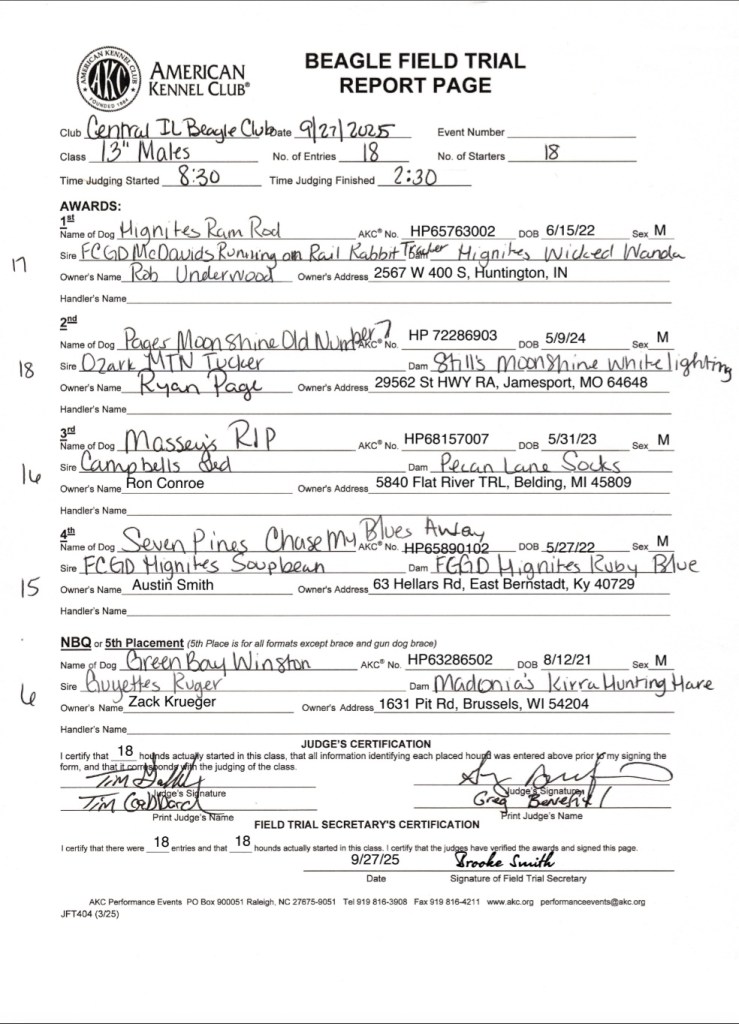 AKC
AMERICAN KENNEL CLUB
FOUNDED 1884
AMERICAN
KENNEL CLUB®
BEAGLE FIELD TRIAL
REPORT PAGE
Club Central IL Beagle Club Date 9/27/2025 Event Number
Class 13" Males No. of Entries 18 No. of Starters 18
Time Judging Started 8:30 Time Judging Finished 2:30
AWARDS:
1st
Name of Dog Hignites Ram Rod AKC® No. HP65763002 DOB 6/15/22 Sex M
17 Sire FCGD McDavids Running on Rail Rabbit Tracker Hignites Wicked Wanda
Owner's Name Rob Underwood Owner's Address 2567 W 400 S, Huntington, IN
Handler's Name
2nd
Name of Dog Pages Moonshine Old Number 7 AKC® No. HP 72286903 DOB 5/9/24 Sex M
18 Sire Ozark MTN Tucker Dam Still's Moonshine White lighting
Owner's Name Ryan Page Owner's Address 29562 St HWY RA, Jamesport, MO 64648
Handler's Name
3rd
Name of Dog Massey's RIP AKC® No. HP68157007 DOB 5/31/23 Sex M
16 Sire Campbells Dam Pecan Lane Socks
Owner's Name Ron Conroe Owner's Address 5840 Flat River TRL, Belding, MI 45809
Handler's Name
4th
Name of Dog Seven Pines Chase My Blues Away AKC® No. HP65890102 DOB 5/27/22 Sex M
Sire FCGD Hignites Soupbean Dam FCGD Hignites Ruby Blue
15 Owner's Name Austin Smith Owner's Address 63 Hellars Rd, East Bernstadt, Ky 40729
Handler's Name
NBQ or 5th Placement (5th Place is for all formats except brace and gun dog brace)
Name of Dog Green Bay Winston AKC® No. HP63286502 DOB 8/12/21 Sex M
6 Sire Guyettes Ruger Dam Madonia's Kirra Hunting Hare
Owner's Name Zack Krueger Owner's Address 1631 Pit Rd, Brussels, WI 54204
Handler's Name
JUDGE'S CERTIFICATION
I certify that 18 hounds actually started in this class, that all information identifying each placed hound was entered above prior to my signing the
form, and that it corresponds with the judging of the class.
Judge's Signature Judge's Signature
Tim Goddard Greg Benefiel
Print Judge's Name Print Judge's Name
FIELD TRIAL SECRETARY'S CERTIFICATION
I certify that there were 18 entries and that 18 hounds actually started in this class. I certify that the judges have verified the awards and signed this page.
9/27/25 Brooke Smith
Date Signature of Field Trial Secretary
AKC Performance Events PO Box 900051 Raleigh, NC 27675-9051 Tel 919 816-3908 Fax 919 816-4211 www.akc.org performanceevents@akc.org
JFT404 (3/25)